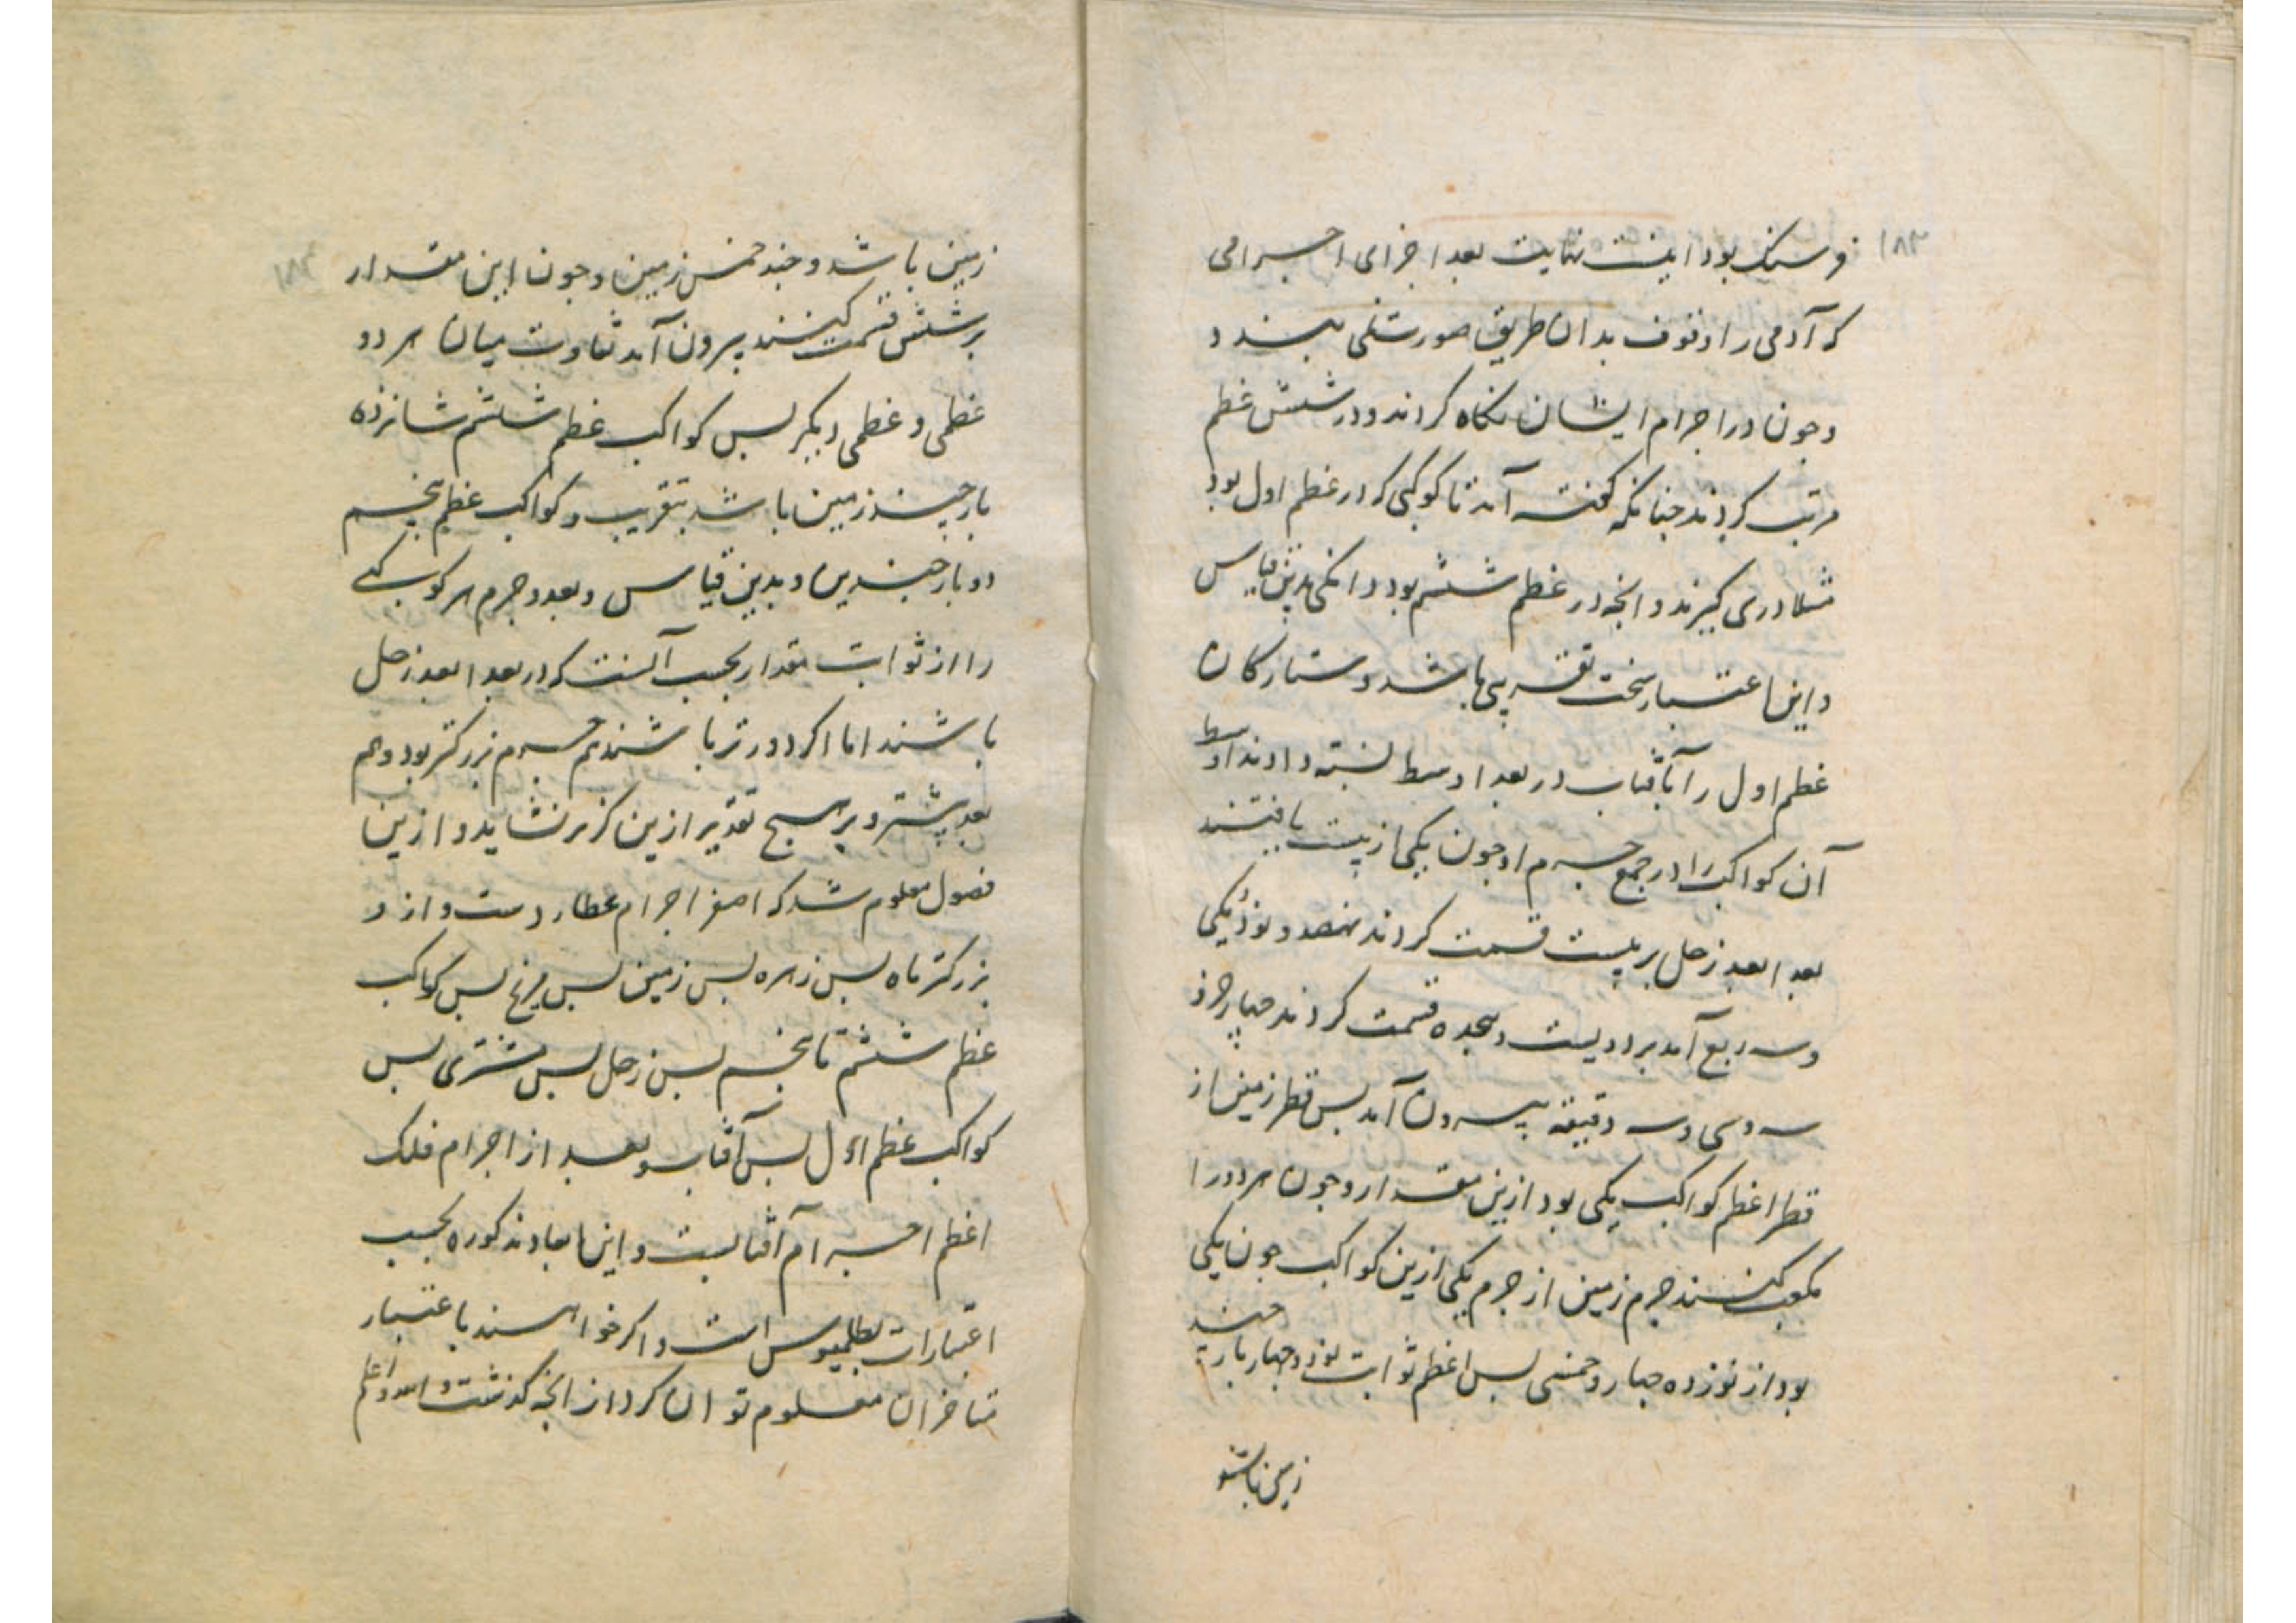 ۱۸۳
فرسنک بود اینست نهایت بعد اجزای اجرامی
که آدمی را وقوف بدان طریق صورت می بندد
و جون در اجرام ایشان نکاه کردند و در شش عظم
مرتب کردند جنانکه کفته آمد تا کوکبی که در عظم اول بود
مثلا دری کیرند و انجه در عظم ششم بود دانکی بدین قیاس
و این اعتبار سخت تقریبی باشد و ستارکان
عظم اول را بآفتاب در بعد اوسط نسبت دادند اوسط
آن کواکب را در جمع جرم او جون یکی از بیست یافتند
بعد ابعد زحل بر بیست قسمت کردند نهصد و نود و یکی
و سه ربع آمد بر دویست و هجده قسمت کردند چهار جزؤ
سه و سی و سه دقیقه بیرون آمد بس قطر زمین از
قطر اعظم کواکب یکی بود ازین مقدار و جون هر دو را
مکعب کنند جرم زمین از جرم یکی ازین کواکب جون یکی
بود از نوزده جهار و خمسی بس اعظم ثوابت نود و جهار بار جند
زمین باشد
۱۸۳
زمین باشد و جند خمس زمین و جون این مقدار
بر شش قسمت کنند بیرون آمد تفاوت میان هر دو
عظمی و عظمی دیکر بس کواکب عظم ششم شانزده
بار جند زمین باشد بتقریب و کواکب عظم بنجم
دو بار جندین و بدین قیاس و بعد و جرم هر کوکبی
را از ثوابت مقدار بحسب آنست که در بعد ابعد زحل
باشند اما اکر دورتر باشند هم جرم بزرکتر بود و هم
بعد بیشتر و بر هیج تقدیر ازین کمتر نشاید و ازین
فصول معلوم شد که اصغر اجرام عطاردست و از و
بزرکتر ماه بس زهره بس زمین بس مریخ بس کواکب
عظم ششم تا بنجم بس زحل بس مشتری بس
کواکب عظم اول بس آفتاب و بعد از اجرام فلک
اعظم اجرام آفتابست و این ابعاد مذکوره بحسب
اعتبارات بطلمیوس است و اکر خواهند باعتبار
متاخران معلوم توان کرد از انجه کذشت والله اعلم